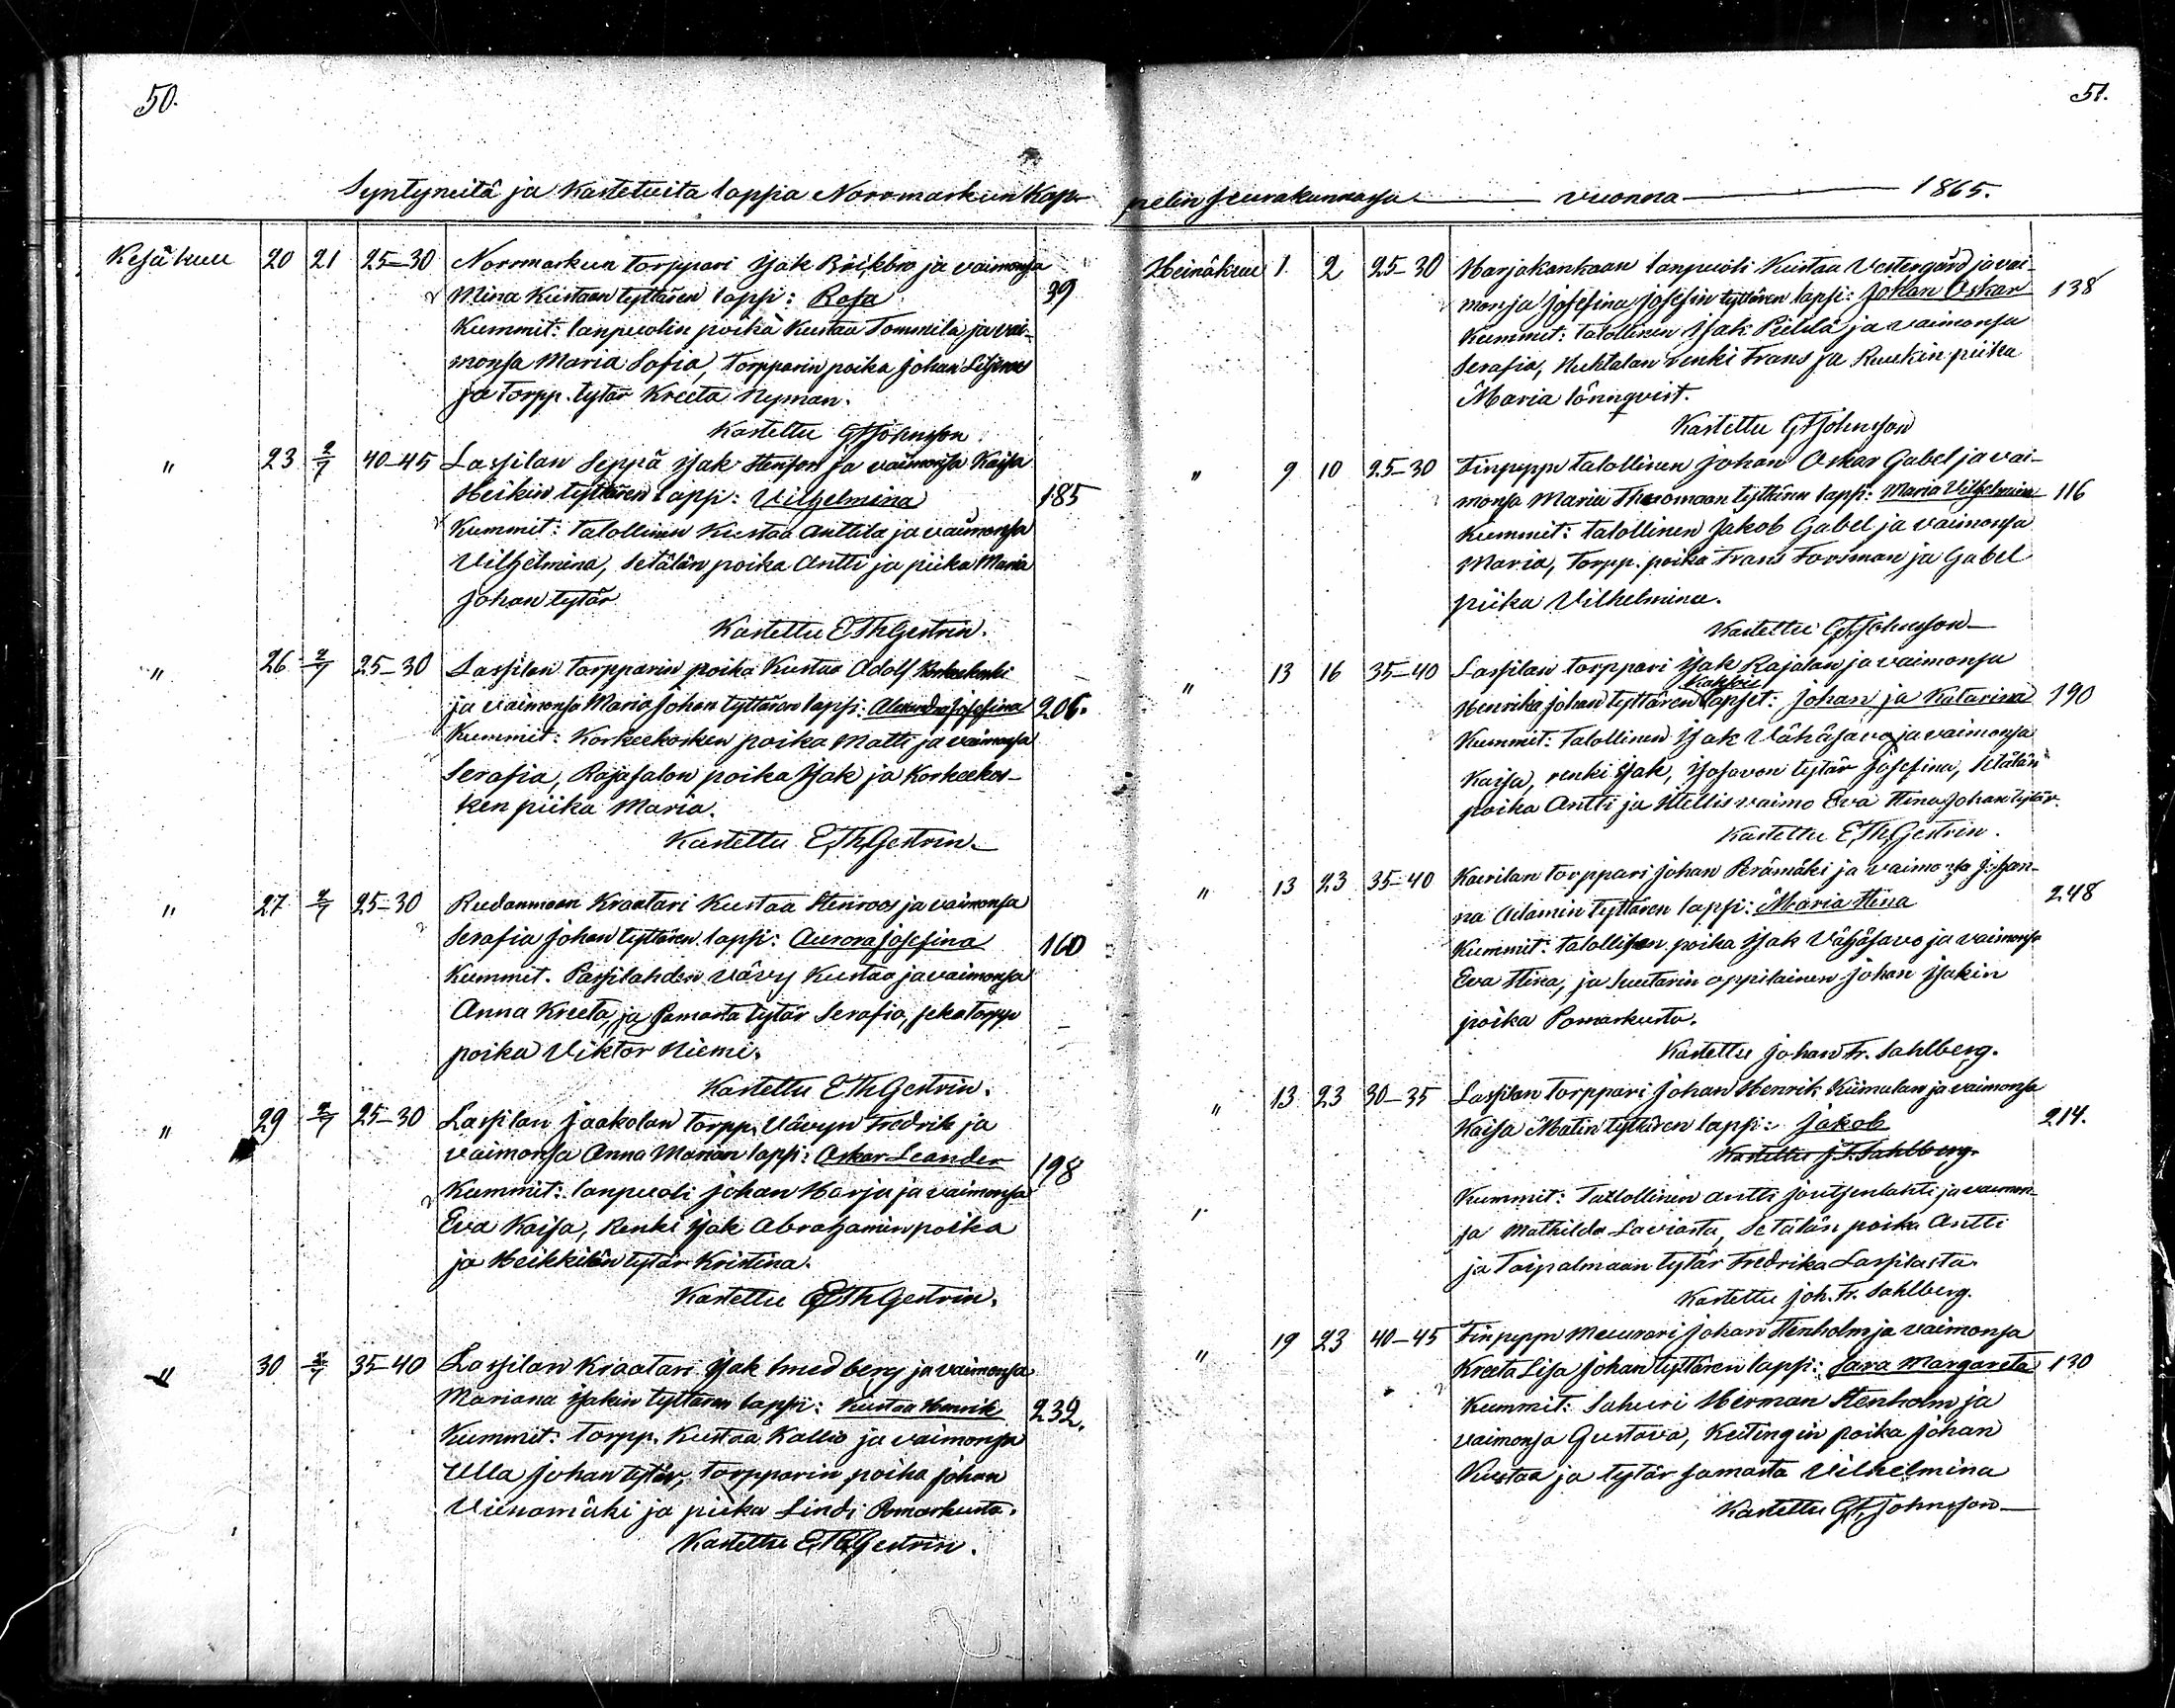 50.
Syntyneitä ja Kastetuita lappia Norrmarkun Kap-
Kesäkuu 20 21 25–30 Norrmarkun torppari Isak Brikbro ja vaimonsa
Mina Kustaan tyttären lapsi: Rosa 39
Kummit: lanpuolin poika Kustaa Tommila ja vai-
monsa Maria Sofia, Torpparin poika Johan Liljeroos
ja torpp. tytär Kreeta Nyman.
Kastettu GFJohnsson
" 23 2/7 40–45 Lassilan Seppä Isak Stenfors ja vaimonsa Kaisa
Heikin tyttären lapsi: Vilhelmina 185
Kummit: talollinen Kustaa Anttila ja vaimonsa
Vilhelmina, Setälän poika Antti ja piika Maria
Johan tytär
Kastettu EThGestrin.
" 26 2/7 25–30 Lassilan torpparin poika Kustaa Adolf Korkeekoski
ja vaimonsa Maria Johan tyttären lapsi: Alexandra Josefina 206.
Kummit: Korkeekosken poika Matti ja vaimonsa
Serafia, Rajasalon poika Isak ja Korkeekos-
ken piika Maria.
Kastettu EThGestrin.
" 27 2/7 25–30 Rudanmaan Kraatari Kustaa Stenroos ja vaimonsa
Serafia Johan tyttären lapsi: Aurora Josefina 160
Kummit. Passilahden vävy Kustaa ja vaimonsa
Anna Kreeta, ja samasta tytär Serafia, seka torpp
poika Viktor Niemi.
Kastettu EThGestrin.
" 29 2/7 25–30 Lassilan Jaakolan torpp. Vävyn Fredrik ja
vaimonsa Anna Marian lapsi: Oskar Leander 198
Kummit: lanpuoli Johan Harju ja vaimonsa
Eva Kaisa, Renki Isak Abrahamin poika
ja Heikkilän tytär Kristina.
Kastettu EThGestrin.
" 30 2/7 35–40 Lassilan Kraatari Isak Smedberg ja vaimonsa
Mariana Isakin tyttären lapsi: Kustaa Henrik 232.
Kummit: torpp. Kustaa Kallio ja vaimonsa
Ulla Johan tytär, torpparin poika Johan
Viinamäki ja piika Lindi Pomarkusta.
Kastettu EThGestrin.
51.
pelin seurakunnassa vuonna 1865.
Heinäkuu 1 2 25–30 Harjakankaan lanpuoli Kustaa Vestergård ja vai-
monsa Josefina Josefin tyttären lapsi: Johan Oskar 138
Kummit: talollinen Isak Piililä ja vaimonsa
Serafia, Huhtalan renki Frans ja Ruukin piika
Maria Lönnqvist.
Kastettu GFJohnsson
" 9 10 25–30 Finpyyn talollinen Johan Oskar Gabel ja vai-
monsa Maria Thoomaan tyttären lapsi: Maria Vilhelmina 116
Kummit: talollinen Jakob Gabel ja vaimonsa
Maria, torpp. poika Frans Forsman ja Gabel
piika Vilhelmina.
Kastettu GFJohnsson
" 13 16 35–40 Lassilan torppari Isak Rajalan ja vaimonsa
Kaksois
Henrika Johan tyttären lapset: Johan ja Katarina 190
Kummit: talollinen Isak Vähäsavo ja vaimonsa
Kaisa, renki Isak, Isosavon tytär Josefina, Setälän
poika Antti ja Itellisvaimo Eva Stina Johan tytär.
Kastettu EThGestrin.
" 13 23 35–40 Kairilan torppari Johan Perämäki ja vaimonsa Johan-
na Adamin tyttären lapsi: Maria Stina 248
Kummit: talollisen poika Isak Vähäsavo ja vaimonsa
Eva Stina, ja Suutarin oppilainen Johan Isakin
poika Pomarkusta.
Kastettu Johan Fr. Sahlberg.
" 13 23 30–35 Lassilan torppari Johan Henrik Kiimalan ja vaimonsa
Kaisa Matin tyttären lapsi: Jakob 214.
Kastettu J.F.Sahlberg.
" Kummit: Tallollinen Antti Joutsenlahti ja vaimon-
sa Mathilda Laviasta, Setälän poika Antti
ja Taipalmaan tytär Fredrika Lassilasta.
Kastettu Joh. Fr. Sahlberg.
" 19 23 40–45 Finpyyn Muurari Johan Stenholm ja vaimonsa
Kreeta Lisa Johan tyttären lapsi: Sara Margareta 130
Kummit: Sahuri Herman Stenholm ja
vaimonsa Gustava, Kutingin poika Johan
Kustaa ja tytär samasta Vilhelmina
Kastettu GFJohnsson